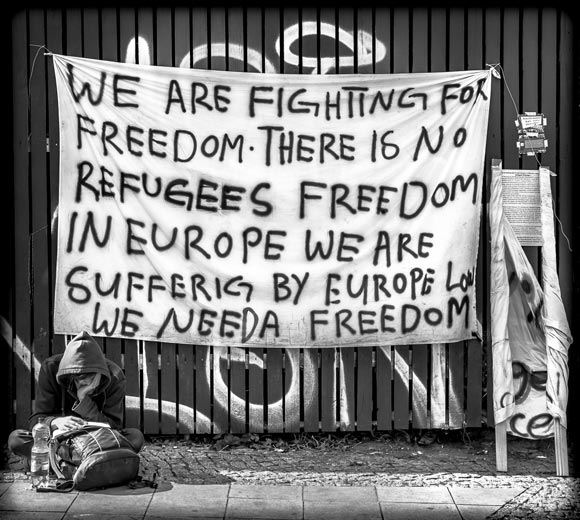 WE ARE FIGHTING FOR
FREEDOM. THERE IS NO
REFUGEES FREEDOM
IN EUROPE WE ARE
SUFFERIG BY EUROPE LOW
WE NEEDA FREEDOM